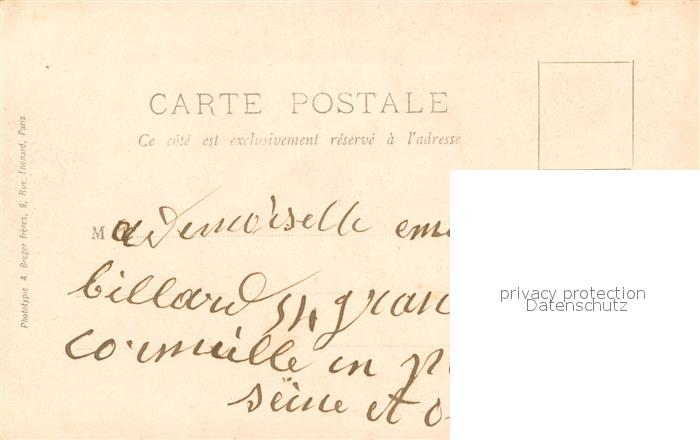 CARTE POSTALE
Ce côté est exclusivement réservé à l'adresse
Mademoiselle
billard 54 gran
Cormeille en
seine et
privacy protection
Datenschutz
Phototypie A. Breger frères, 9, Rue Thénard, Paris